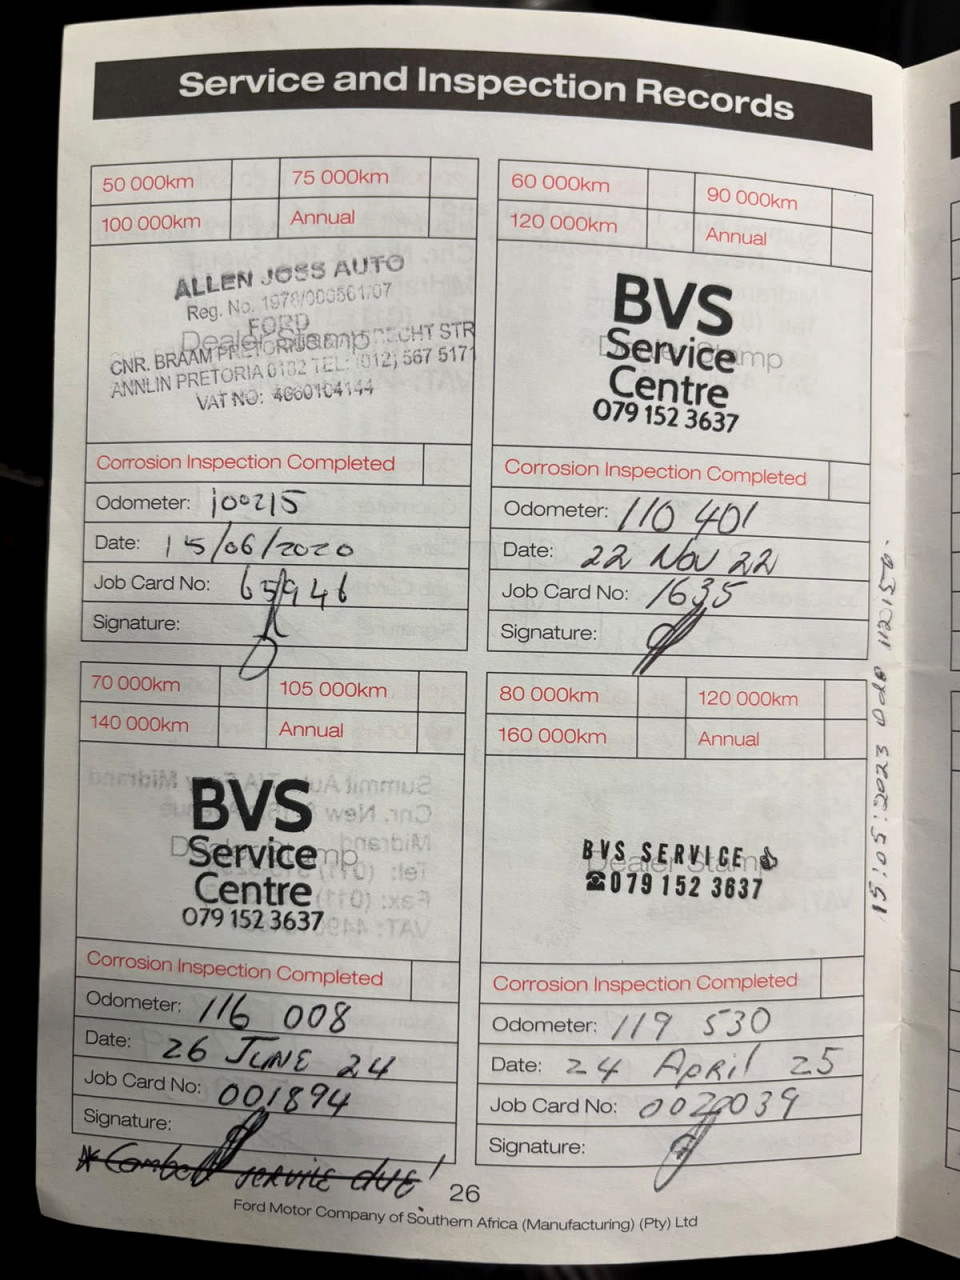 Service and Inspection Records
50 000km 75 000km
100 000km Annual
ALLEN JOSS AUTO
Reg. No. 1978/000561/07
FORD
Dealer Stamp
CNR. BRAAM PRETORIUS & BRECHT STR
ANNLIN PRETORIA 0182 TEL: (012) 567 5171
VAT NO: 4660104144
Corrosion Inspection Completed
Odometer: 100215
Date: 15/06/2020
Job Card No: 65946
Signature:
60 000km 90 000km
120 000km Annual
BVS
Service
Dealer Stamp
Centre
079 152 3637
Corrosion Inspection Completed
Odometer: 110 401
Date: 22 Nov 22
Job Card No: 1635
Signature:
15:05:2023 ODO 112150.
70 000km 105 000km
140 000km Annual
BVS
Service
Dealer Stamp
Centre
079 152 3637
Corrosion Inspection Completed
Odometer: 116 008
Date: 26 JUNE 24
Job Card No: 001894
Signature:
SERVICE DUE!
80 000km 120 000km
160 000km Annual
BVS SERVICE
Dealer Stamp
☎079 152 3637
Corrosion Inspection Completed
Odometer: 119 530
Date: 24 April 25
Job Card No: 0020039
Signature:
26
Ford Motor Company of Southern Africa (Manufacturing) (Pty) Ltd